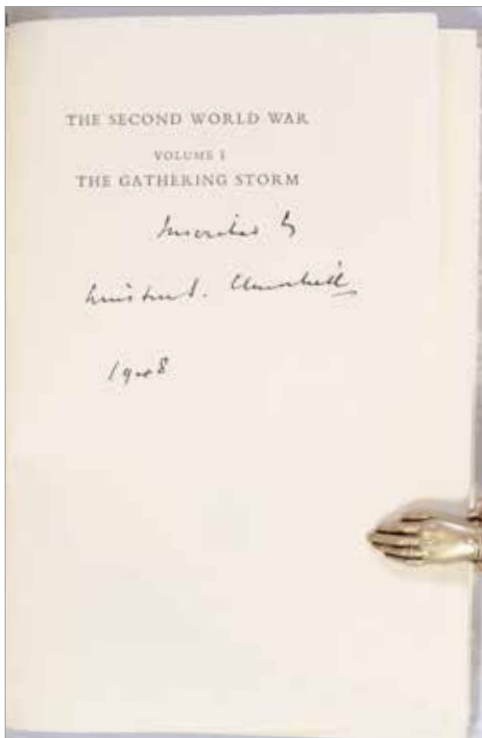 THE SECOND WORLD WAR
VOLUME I
THE GATHERING STORM
Inscribed by
Winston S. Churchill
1948